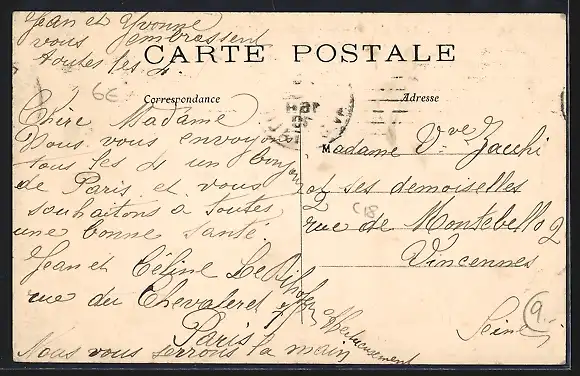 Jean et Yvonne
vous embrassent
toutes les 4.
CARTE POSTALE
6E
Correspondance
Adresse
Chère Madame
Nous vous envoyons
tous les 4 un bonjour
de Paris et vous
souhaitons a toutes
une bonne santé.
Jean et Céline Le
rue du Chevaleret
Paris
affectueusement
Nous vous serrons la main
Madame Vve Jacchi
et ses demoiselles
2 rue de Montebello 2
C18
Vincennes
Seine
9.-